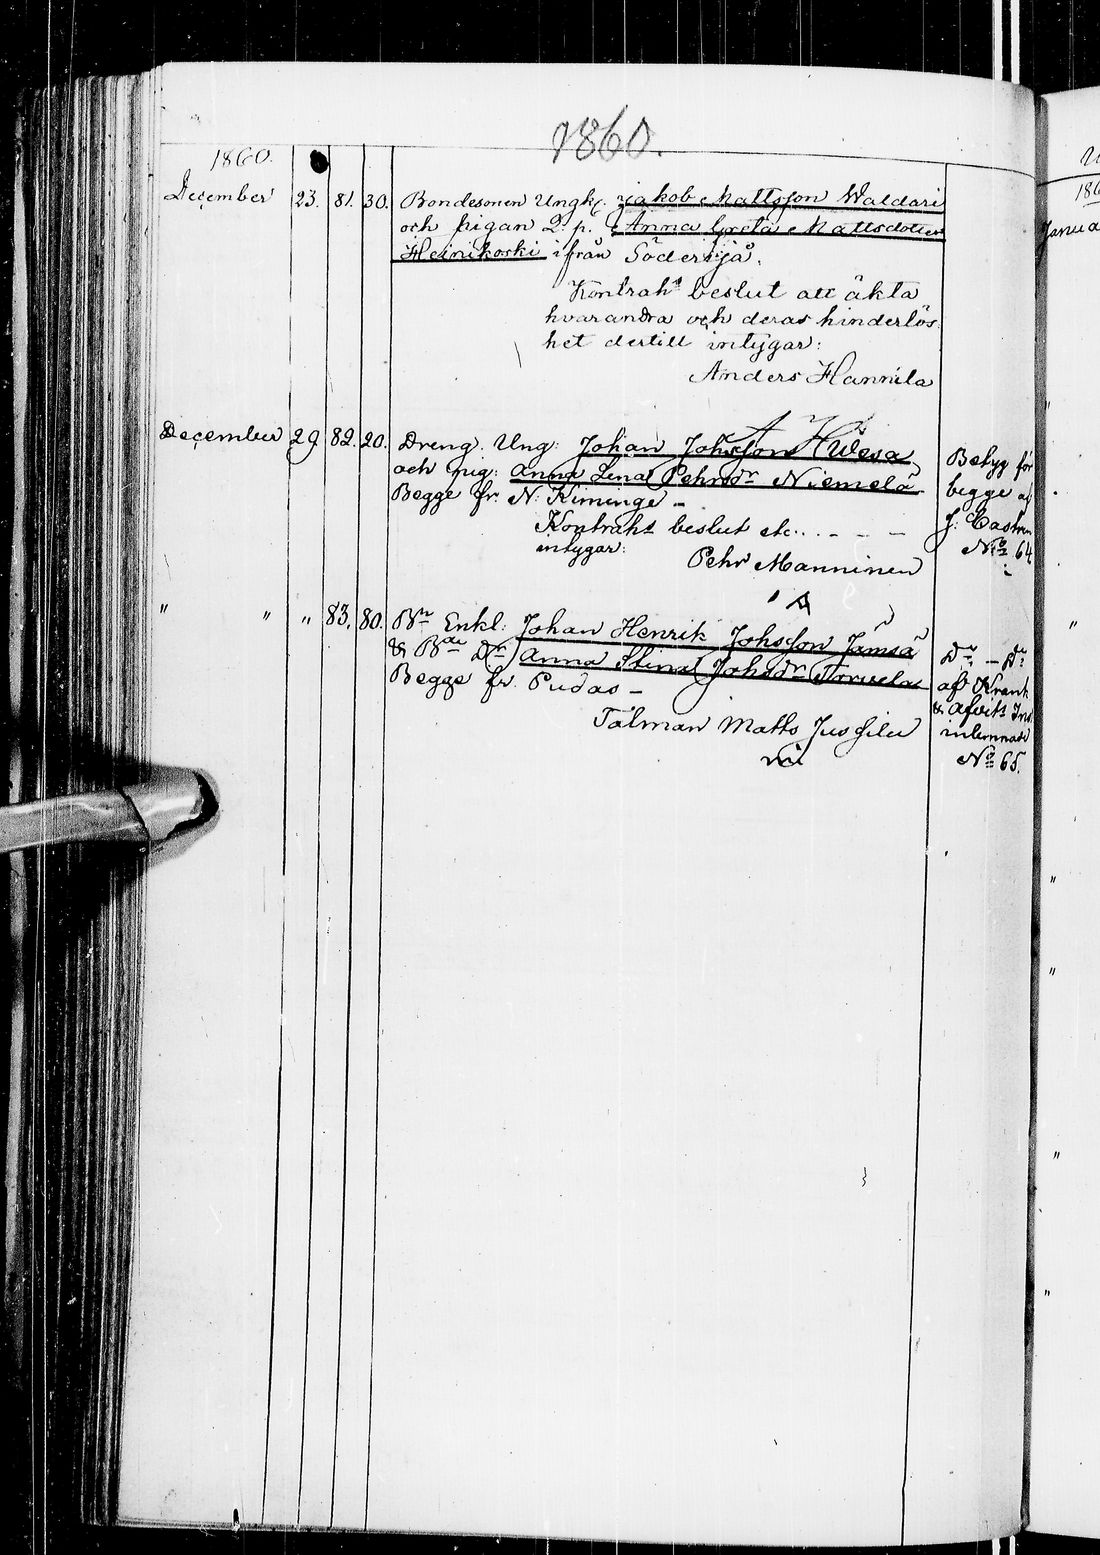 1860.
1860.
December 23. 81. 30. Bondesonen Ungk. Jakob Mattsson Waldari
och pigan Q. p. Anna Greta Mattsdotter
Heinikoski ifrån Söderijå.
Kontrah beslut att äkta
hvarandra och deras hinderlös
het dertill intygar:
Anders Hannila
December 29 82. 20. Dreng. Ung: Johan Johsson
och pig: Anna Lena Pehrsdr Niemelä
Begge fr. N: Kiminge –
Kontrakt beslut etc. . – – –
intygar:
Pehr Manninen
Betyg för
begge af
J: Castren
No 64
" " " 83. 80. Bn Enkl: Johan Henrik Johsson Jämsä
& Bde Dr Anna Stina Johsdr Torvela
Begge fr. Pudas –
Tålman Matts
Do – Do
af
& Afvitt.
inlemnadt
No 65.
186
Janua